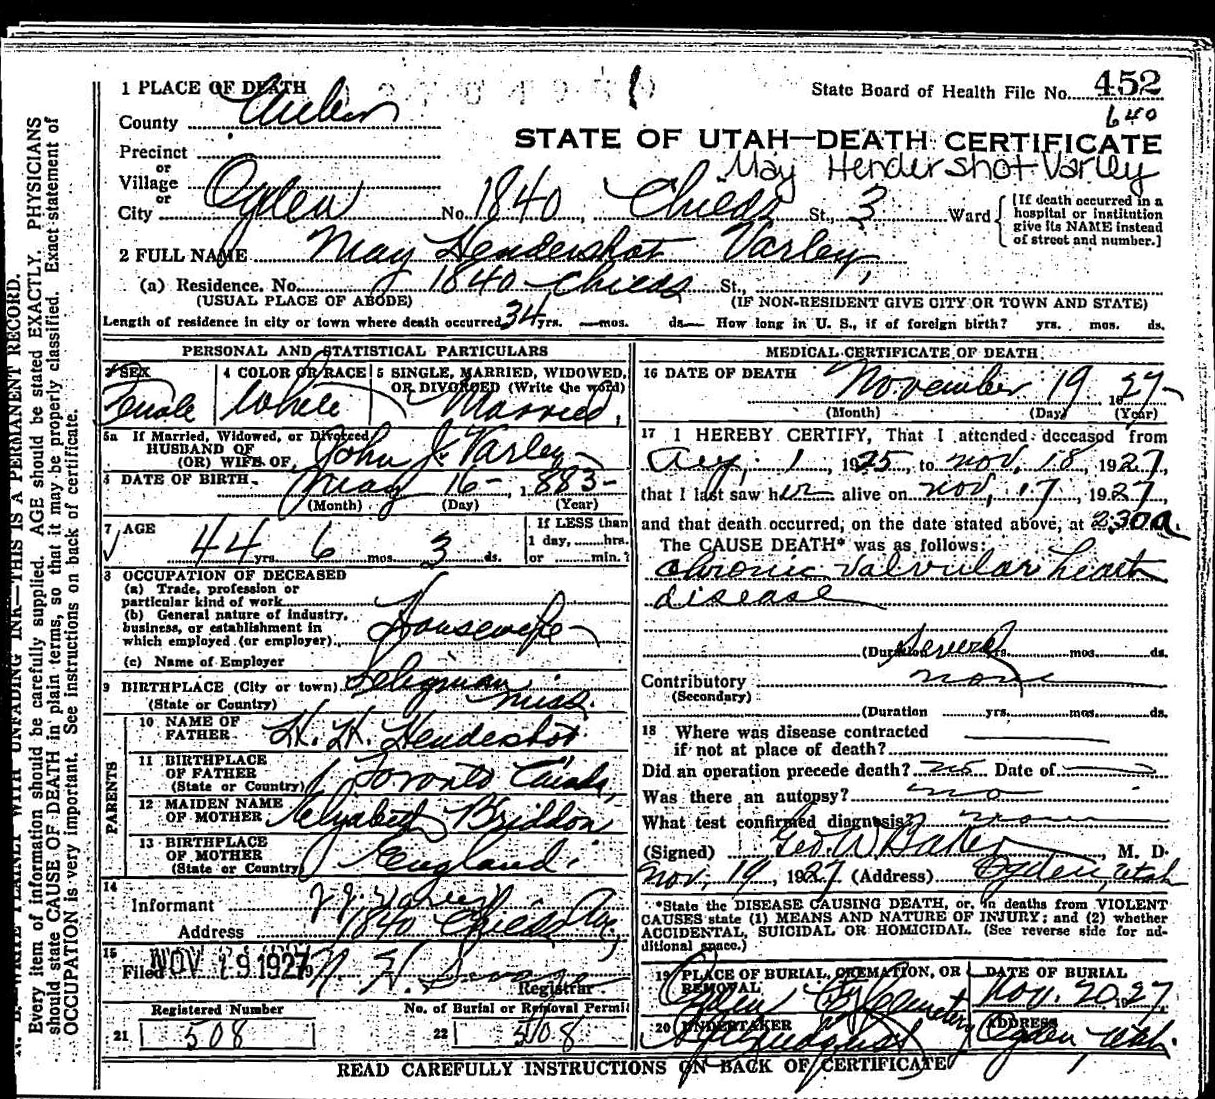 1 PLACE OF DEATH
State Board of Health File No. 452
640
County Weber
STATE OF UTAH—DEATH CERTIFICATE
May Hendershot Varley
Precinct
or
Village
or
City Ogden No. 1840, Childs St., 3 Ward
[If death occurred in a
hospital or institution
give its NAME instead
of street and number.]
2 FULL NAME May Hendershot Varley,
(a) Residence. No. 1840 Childs St.,
(USUAL PLACE OF ABODE) (IF NON-RESIDENT GIVE CITY OR TOWN AND STATE)
Length of residence in city or town where death occurred 34 yrs. — mos. ds. — How long in U. S., if of foreign birth? yrs. mos. ds.
PERSONAL AND STATISTICAL PARTICULARS
3 SEX
Female
4 COLOR OR RACE
White
5 SINGLE, MARRIED, WIDOWED,
OR DIVORCED (Write the word)
Married,
5a If Married, Widowed, or Divorced
HUSBAND OF
(OR) WIFE OF John J. Varley
6 DATE OF BIRTH May 16-, 1883-
(Month) (Day) (Year)
7 AGE
44 yrs. 6 mos. 3 ds.
If LESS than
1 day, ......hrs.
or ..........min.?
8 OCCUPATION OF DECEASED
(a) Trade, profession or
particular kind of work
(b) General nature of industry,
business, or establishment in
which employed (or employer) Housewife
(c) Name of Employer
9 BIRTHPLACE (City or town) Seligman
(State or Country) Miss.
PARENTS
10 NAME OF
FATHER H. H. Hendeshot
11 BIRTHPLACE
OF FATHER
(State or Country) Toronto
12 MAIDEN NAME
OF MOTHER Elizabeth Briddon
13 BIRTHPLACE
OF MOTHER
(State or Country) England.
14
Informant J. J. Varley
Address 1840 Childs Ave,
15
Filed NOV 19 1927 N. H.
Registrar
Registered Number
21 508
No. of Burial or Removal Permit
22 508
MEDICAL CERTIFICATE OF DEATH
16 DATE OF DEATH November 19 1927
(Month) (Day) (Year)
17 I HEREBY CERTIFY, That I attended deceased from
Aug, 1, 1925, to Nov, 18, 1927,
that I last saw her alive on Nov, 17, 1927,
and that death occurred, on the date stated above, at 2:30 a.
The CAUSE DEATH* was as follows:
Chronic valvular heart
disease
(Duration several yrs. mos. ds.
Contributory none
(Secondary)
(Duration yrs. mos. ds.
18 Where was disease contracted
if not at place of death?
Did an operation precede death? no Date of
Was there an autopsy? no
What test confirmed diagnosis? none
(Signed) Geo. W Baker, M. D.
Nov, 19, 1927 (Address) Ogden, Utah
*State the DISEASE CAUSING DEATH, or, in deaths from VIOLENT
CAUSES state (1) MEANS AND NATURE OF INJURY; and (2) whether
ACCIDENTAL, SUICIDAL OR HOMICIDAL. (See reverse side for ad-
ditional space.)
19 PLACE OF BURIAL, CREMATION, OR
REMOVAL
Ogden City Cemetery
DATE OF BURIAL
Nov. 20, 1927
20 UNDERTAKER
ADDRESS
Ogden, Utah.
READ CAREFULLY INSTRUCTIONS ON BACK OF CERTIFICATE
N. B. WRITE PLAINLY WITH UNFADING INK—THIS IS A PERMANENT RECORD.
Every item of information should be carefully supplied. AGE should be stated EXACTLY. PHYSICIANS
should state CAUSE OF DEATH in plain terms, so that it may be properly classified. Exact statement of
OCCUPATION is very important. See instructions on back of certificate.